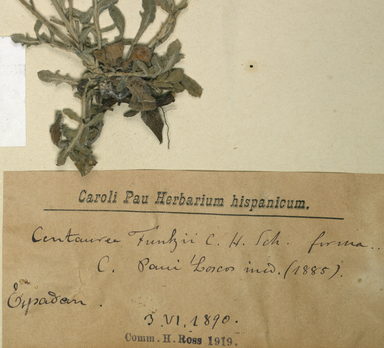 Caroli Pau Herbarium hispanicum.
Centaurea Funkii C. H. Sch. forma..
C. Paui Loscos ined. (1885).
Espadan.
3. VI. 1890.
Comm. H. Ross 1919.